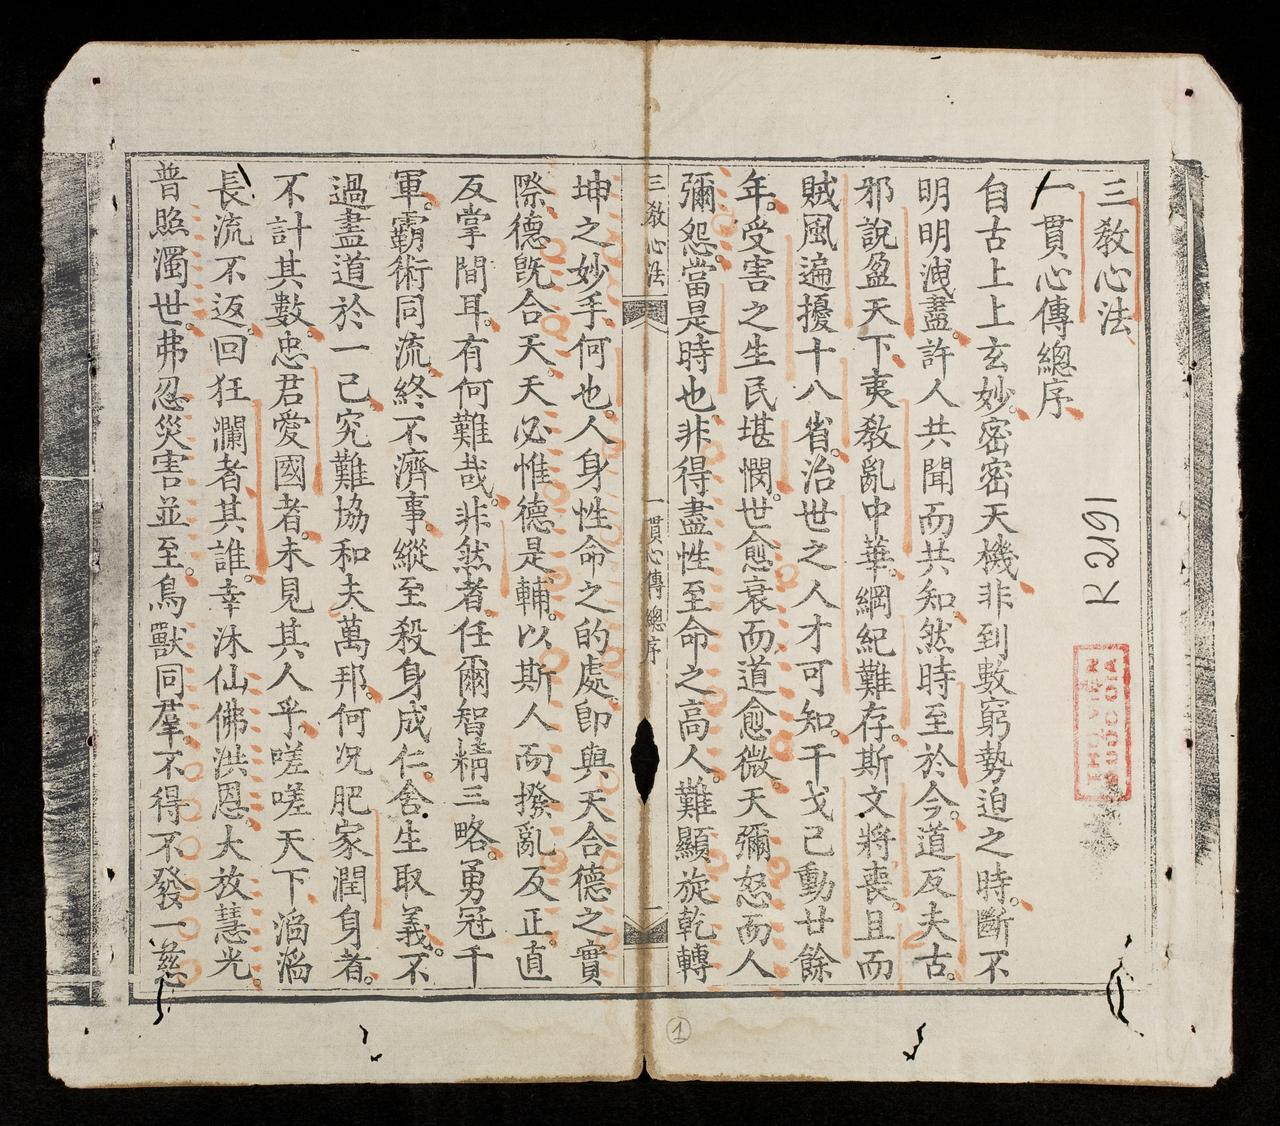 三教心法
一貫心傳總序
自古上上玄妙。密密天機。非到數窮勢迫之時。斷不
明明洩盡。許人共聞而共知。然時至於今。道反夫古。
邪說盈天下。夷教亂中華。綱紀難存。斯文將喪。且而
賊風遍擾十八省。治世之人才可知。干戈已動廿餘
年。受害之生民堪憫。世愈衰而道愈微。天彌怒而人
彌怨。當是時也。非得盡性至命之高人。難顯旋乾轉
三教心法
一貫心傳總序
一
坤之妙手。何也。人身性命之的處。卽與天合德之實
際。德旣合天。天必惟德是輔。以斯人而撥亂反正。直
反掌間耳。有何難哉。非然者。任爾智精三略。勇冠千
軍。霸術同流。終不濟事。縱至殺身成仁。舍生取義。不
過盡道於一己。究難協和夫萬邦。何況肥家潤身者。
不計其數。忠君愛國者。未見其人乎。嗟嗟天下滔滔
長流不返。回狂瀾者其誰。幸沐仙佛洪恩。大放慧光。
普照濁世。弗忍災害並至。鳥獸同羣。不得不發一慈
R 2191
THƯ VIỆN
PHUOC HOA
1